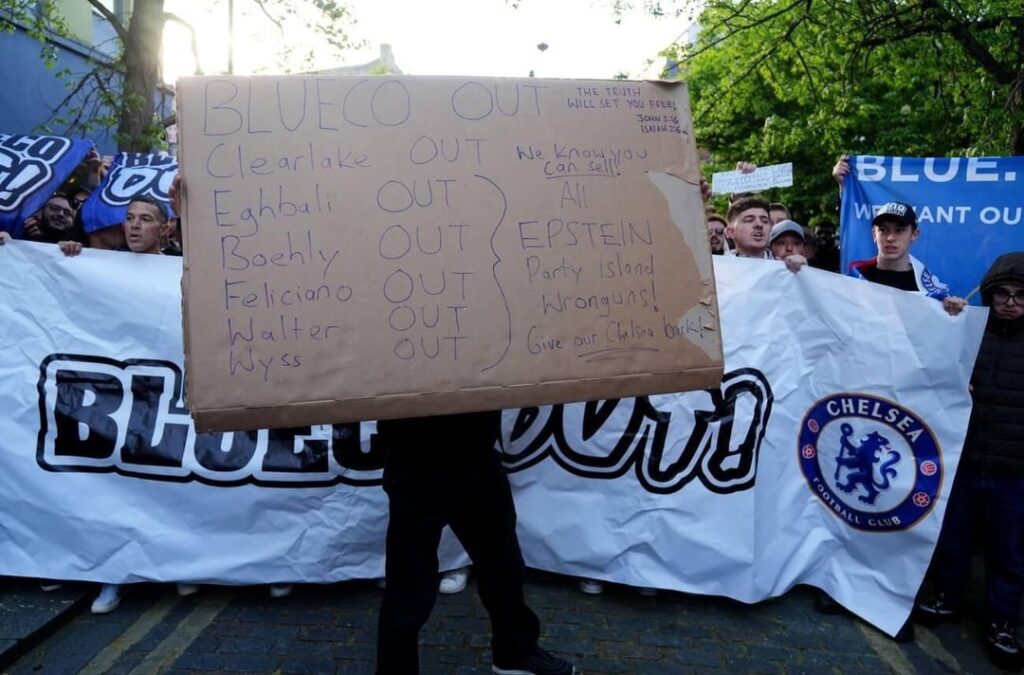 BLUECO OUT
THE TRUTH
WILL SET YOU FREE!
Clearlake OUT
Eghbali OUT
Boehly OUT
Feliciano OUT
Walter OUT
Wyss OUT
We know you
can sell!
All
EPSTEIN
Party Island
Wronguns!
Give our Chelsea back!
OUT!
CHELSEA
FOOTBALL CLUB
BLUE.
WE WANT OU